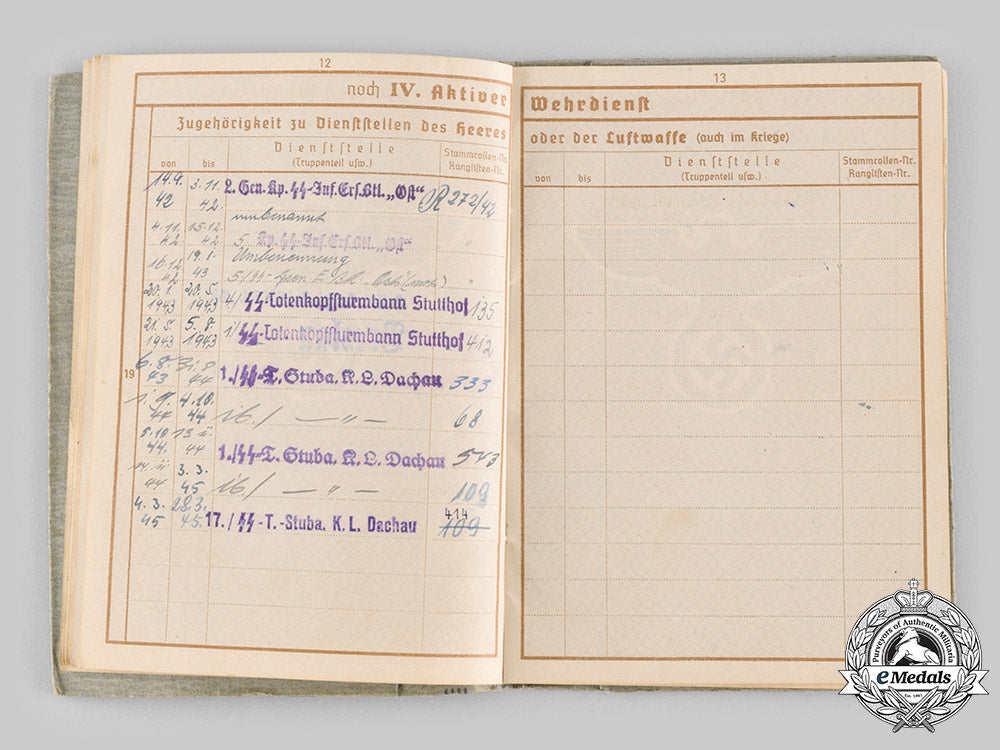 12
noch IV. Aktiver
Zugehörigkeit zu Dienststellen des Heeres
von
bis
Dienststelle
(Truppenteil usw.)
Stammrollen-Nr.
Ranglisten-Nr.
14.9. 42
3.11. 42.
2. Gen. Kp. SS-Inf. Ers. Btl. „Ost“
272/42
umbenannt
4.11. 42
15.12 42
5. Kp. SS-Inf. Ers. Btl. „Ost“
"
Umbenennung
16.12 42
19.1. 43
"
20.1. 1943
20.5. 1943
4/ SS-Totenkopfsturmbann Stutthof
135
21.5. 1943
5.8. 1943
1/ SS-Totenkopfsturmbann Stutthof
412
19
6.8. 43
31.8. 44
1./SS-T. Stuba. K. L. Dachau
333
1.9. 44
4.10. 44
— " —
68
5.10 44.
44
1./SS-T. Stuba. K. L. Dachau
543
44
3.3. 45
— " —
109
4.3. 45
28.3. 45.
17./ SS-T.-Stuba. K. L. Dachau
414
109
13
Wehrdienst
oder der Luftwaffe (auch im Kriege)
von
bis
Dienststelle
(Truppenteil usw.)
Stammrollen-Nr.
Ranglisten-Nr.
Purveyors of Authentic Militaria
eMedals
Est. 1967